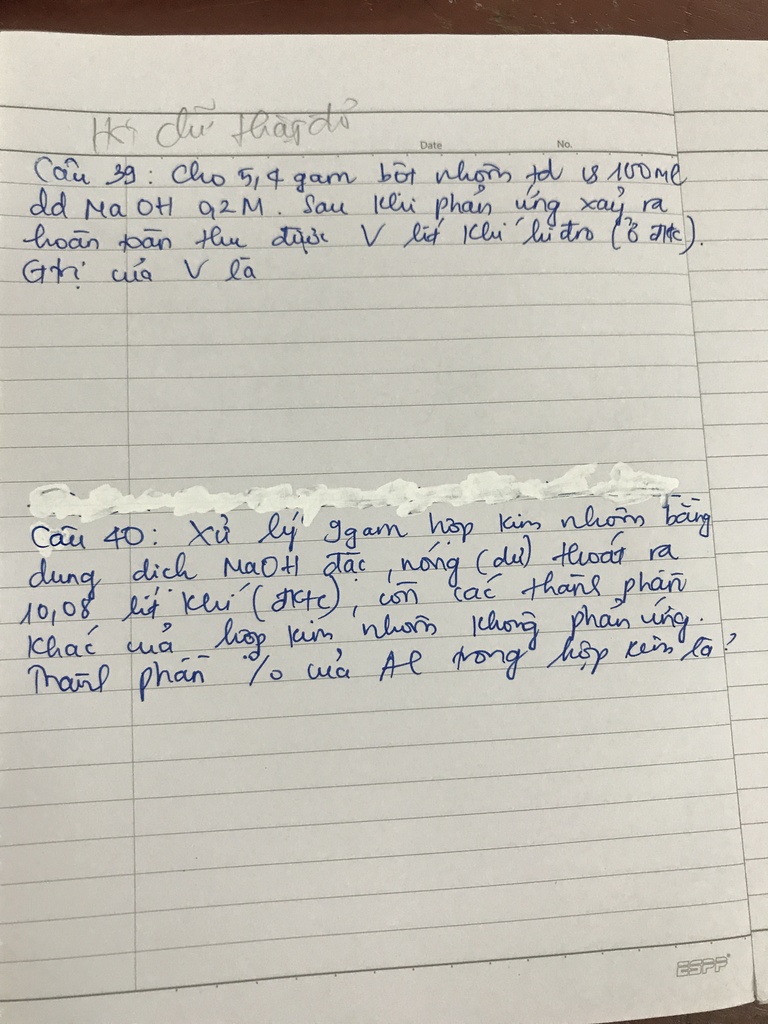 chữ thập đỏ
Date No.
Câu 39: Cho 5,4 gam bột nhôm td vs 100ml
dd NaOH 0,2M. Sau khi phản ứng xảy ra
hoàn toàn thu được V lít khí hiđro (ở đktc).
Gtrị của V là
Câu 40: Xử lý 9gam hợp kim nhôm bằng
dung dịch NaOH đặc, nóng (dư) thoát ra
10,08 lít khí (đktc), còn các thành phần
khác của hợp kim nhôm không phản ứng.
Thành phần % của Al trong hợp kim là?
ESPP